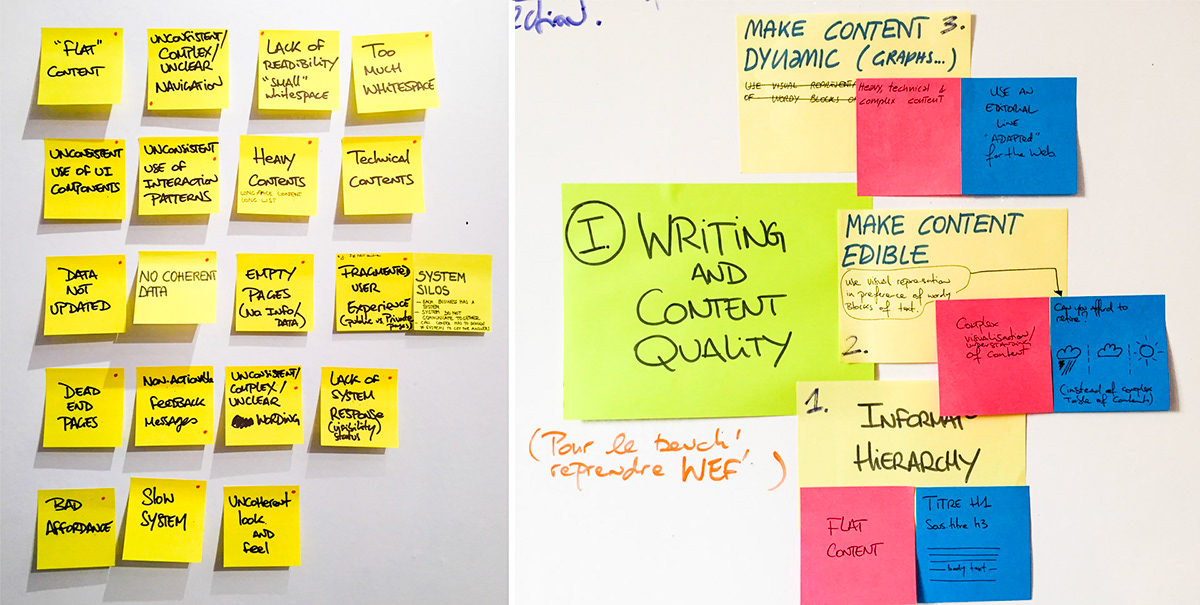 "FLAT"
CONTENT
UNCONSISTENT/
COMPLEX/
UNCLEAR
NAVIGATION
LACK OF
READIBILITY
"SMALL"
WHITESPACE
TOO
MUCH
WHITESPACE
UNCONSISTENT
USE OF UI
COMPONENTS
UNCONSISTENT
USE OF
INTERACTION
PATTERNS
HEAVY
CONTENTS
LONG PAGE CONTENT
LONG LIST
Technical
CONTENTS
DATA
NOT
UPDATED
NO COHERENT
DATA
EMPTY
PAGES
(No INFO/
DATA)
FRAGMENTED
USER
Experience
(public vs Private
pages)
SYSTEM
SILOS
- EACH BUSINESS HAS A
SYSTEM
- SYSTEM DO NOT
COMMUNICATE TO OTHER
DEAD
END
PAGES
NON-Actionable
feedback
Messages
UNCONSISTENT/
COMPLEX/
UNCLEAR
WORDING
LACK OF
SYSTEM
RESPONSE
(visibility)
status
BAD
AFFORDANCE
Slow
SYSTEM
UNCOHERENT
look
AND
feel
ction.
MAKE CONTENT 3.
DYNAMIC (GRAPHS...)
USE VISUAL REPRESENT
OF WORDY BLOCKS O
Heavy, technical &
complex content
USE AN
EDITORIAL
LINE
"ADAPTED"
for the Web
I. WRITING
AND
CONTENT
QUALITY
MAKE CONTENT
EDIBLE
Use visual represation
in preference of wordy
Blocks of text.
2.
Complex
visualisation/
understanding
of content
Can you afford to
retire?
(instead of complex
Table of contents)
(Pour le bench'
reprendre WEF'.)
1. INFORMAT
HIERARCHY
FLAT
CONTENT
TITRE H1
Sous titre h3
body text